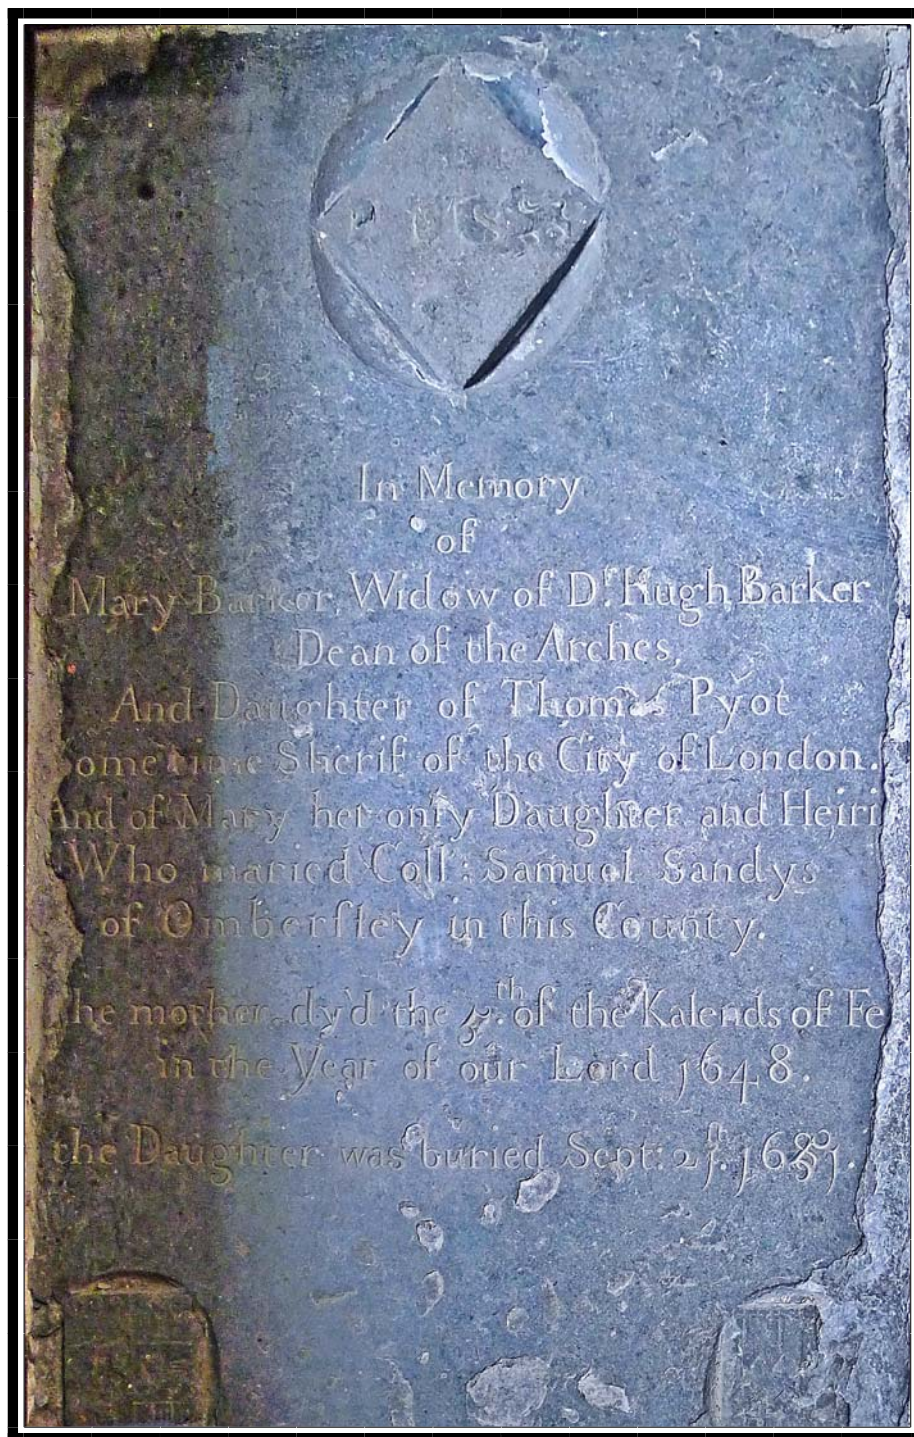 In Memory
of
Mary Barker, Widow of Dr. Hugh Barker
Dean of the Arches,
And Daughter of Thomas Pyot
ometime Sherif of the City of London.
And of Mary her only Daughter and Heiri
Who maried Coll: Samuel Sandys
of Omberſley in this County.
he mother dy'd the 5.th of the Kalends of Fe
in the Year of our Lord 1648.
the Daughter was buried Sept: 21.